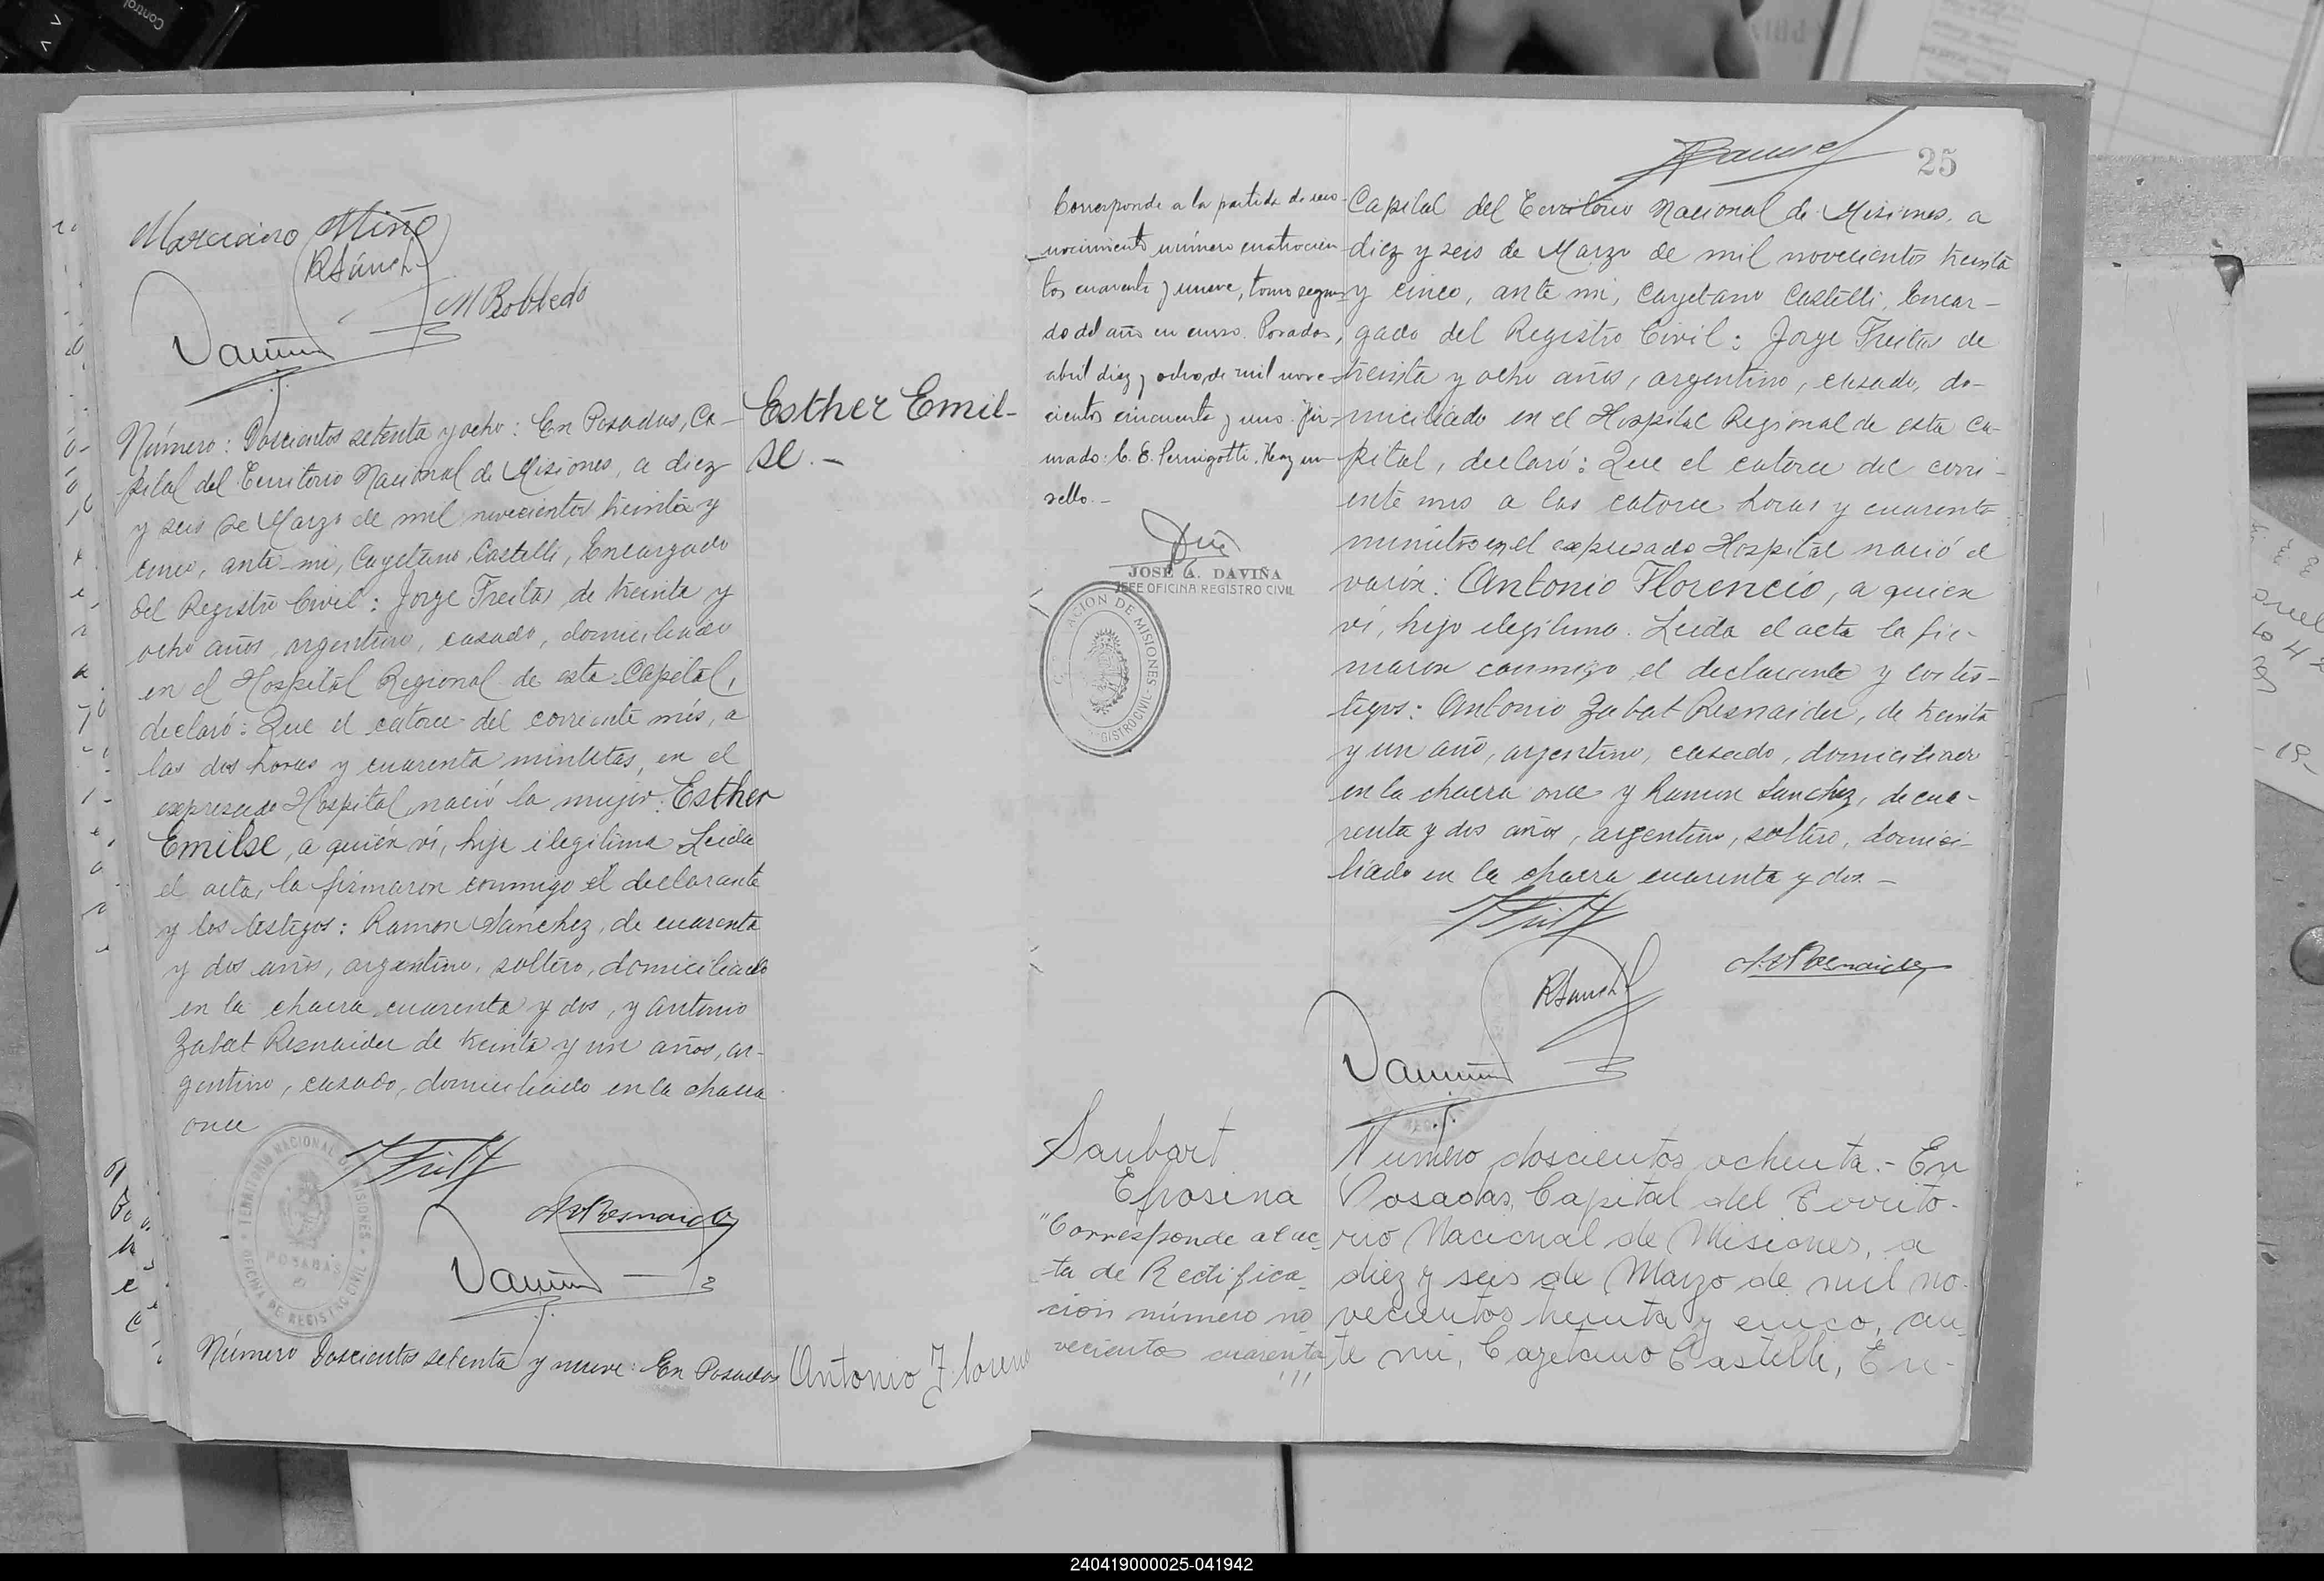 Control
Marciano Miño
RSánch
M Robledo
Número: Doscientos setenta y ocho: En Posadas, Ca-
pital del Territorio Nacional de Misiones, a diez
y seis de Marzo de mil novecientos treinta y
cinco, ante mi, Cayetano Castelli, Encargado
del Registro Civil: Jorge Freitas de treinta y
ocho años, argentino, casado, domiciliado
en el Hospital Regional de esta Capital,
declaró: Que el catorce del corriente mes, a
las dos horas y cuarenta minutos, en el
expresado Hospital nació la mujer: Esther
Emilse, a quién ví, hija ilegítima Leída
el acta, la firmaron conmigo el declarante
y los testigos: Ramon Sanchez, de cuarenta
y dos años, argentino, soltero, domiciliado
en la chacra cuarenta y dos, y Antonio
Zabat Resnaider de treinta y un años, ar-
gentino, casado, domiciliado en la chacra
once
Esther Emil-
se.-
TERRITORIO NACIONAL DE MISIONES
POSADAS
OFICINA DE REGISTRO CIVIL
Número Doscientos setenta y nueve: En Posadas
Antonio Floren
25
Corresponde a la partida de reco-
nocimiento número cuatrocien-
tos cuarenta y nueve, tomo segun-
do del año en curso. Posadas,
abril diez y ocho de mil nove-
cientos cincuenta y uno. Fir-
mado: C. E. Pernigotti. Hay un
sello.-
JOSÉ A. DAVIÑA
JEFE OFICINA REGISTRO CIVIL
ACION DE MISIONES
GISTRO CIVIL
Capital del Territorio Nacional de Misiones, a
diez y seis de Marzo de mil novecientos treinta
y cinco, ante mi, Cayetano Castelli, Encar-
gado del Registro Civil: Jorge Freitas de
treinta y ocho años, argentino, casado, do-
miciliado en el Hospital Regional de esta Ca-
pital, declaró: Que el catorce del corri-
ente mes a las catorce horas y cuarenta
minutos en el expresado Hospital nació el
varón: Antonio Florencio, a quien
ví, hijo ilegítimo. Leída el acta la fir-
maron conmigo el declarante y los tes-
tigos: Antonio Zabat Resnaider, de treinta
y un año, argentino, casado, domiciliado
en la chacra once y Ramon Sanchez, de cua-
renta y dos años, argentino, soltero, domici-
liado en la chacra cuarenta y dos.-
RSanch
Saubart
Efrosina
"Corresponde al ac-
ta de Rectifica-
ción número no-
vecientos cuarenta
Número doscientos ochenta.- En
Posadas, Capital del Territo-
rio Nacional de Misiones, a
diez y seis de Marzo de mil no-
vecientos treinta y cinco, an-
te mi, Cayetano Castelli, En-
240419000025-041942